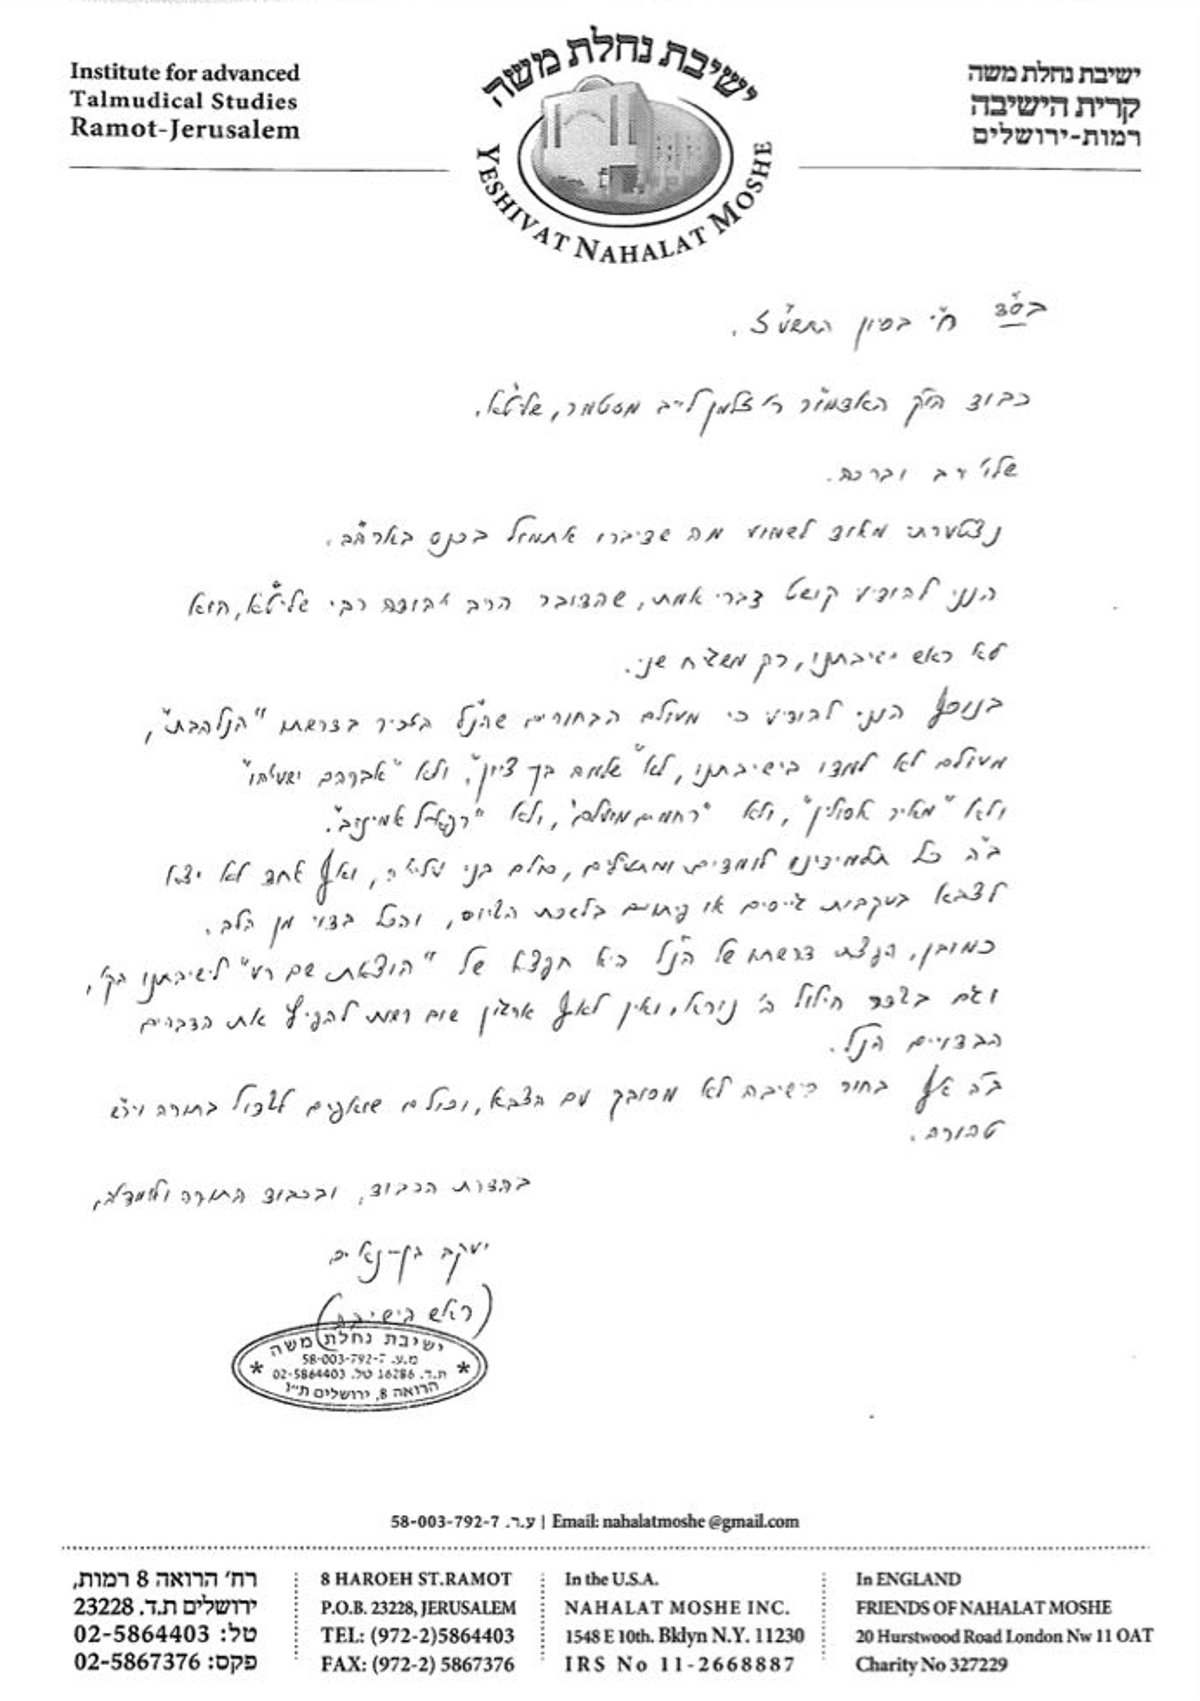 Institute for advanced
Talmudical Studies
Ramot-Jerusalem
ישיבת נחלת משה
YESHIVAT NAHALAT MOSHE
ישיבת נחלת משה
קרית הישיבה
רמות-ירושלים
בס"ד ח"י בסיון התשע"ז.
כבוד הר"ק האדמו"ר ר' זלמן לייב מסטמר, שליט"א.
שלו' רב וברכה.
נצטערתי מאוד לשמוע מה שדיברו אתמול בכנס בארה"ב.
הנני להודיע קושט דברי אמת, שהדובר הרב יהודה רבי שליט"א, הוא
לא ראש ישיבתנו, רק משגיח שני.
בנוסף הנני להודיע כי מעולם הבחורים שהנ"ל הזכיר בדרשתו "הנלהבת",
מעולם לא למדו בישיבתנו, לא "שלמה בן ציון", ולא "אברהם ישעיהו"
ולא "מאיר אסולין", ולא "רחמים מועלם", ולא "רפאל אמינוב".
ב"ה כל תלמידינו לומדים ומתעלים, כולם בני עליה, ואף אחד לא יצא
לצבא בעקבות גייסים או פיתוים בלשכת הגיוס, והכל בדוי מן הלב.
כמובן, הפצת דרשתו של הנ"ל היא חפצא של "הוצאת שם רע" לישיבתנו הק',
וגם בגדר חילול ה' נורא, ואין לאף ארגון שום רשות להפיץ את הדברים
הבדויים הנ"ל.
ב"ה אף בחור ישיבה לא מסובך עם הצבא, וכולם שואפים לגדול בתורה ויר"ש
טהורה.
בהדרת הכבוד, ובכבוד התורה ולומדיה,
יעקב בן-נאים
(ראש הישיבה)
ישיבת נחלת משה
מ.ע. 58-003-792-7
ת.ד. 16286 טל. 02-5864403
הרואה 8, ירושלים ת"ו
58-003-792-7 ע.ר. | Email: nahalatmoshe @gmail.com
רח' הרואה 8 רמות,
ירושלים ת.ד. 23228
טל: 02-5864403
פקס: 02-5867376
8 HAROEH ST.RAMOT
P.O.B. 23228, JERUSALEM
TEL: (972-2)5864403
FAX: (972-2) 5867376
In the U.S.A.
NAHALAT MOSHE INC.
1548 E 10th. Bklyn N.Y. 11230
IRS No 11-2668887
In ENGLAND
FRIENDS OF NAHALAT MOSHE
20 Hurstwood Road London Nw 11 OAT
Charity No 327229